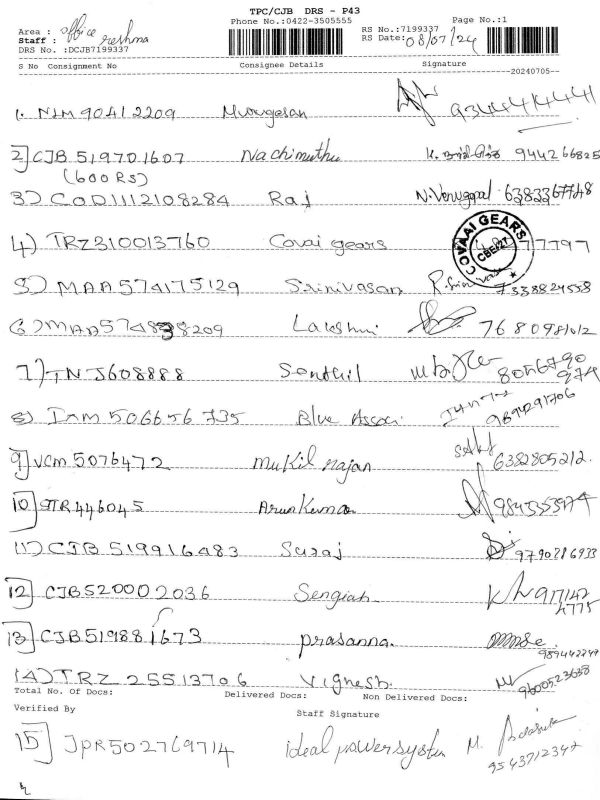 TPC/CJB DRS - P43
Phone No.:0422-3505555 Page No.:1
Area : office
Staff : reshma
RS No.:7199337
RS Date: 08/07/24
DRS No. :DCJB7199337
S No Consignment No Consignee Details Signature
20240705
1. NLM 90412209 Murugesan 9344414441
2] CJB 519701607 Nachimuthu 944266825
(600 RS)
3) COD1112108284 Raj N. Venugopal 6383367748
4) TRZ310013760 Covai gears COVAAI GEARS CBE/27 77797
5) MAA574175129 Srinivasan R. Srinivasan 7338824558
6) MAA574838209 Lakshmi 7680981012
7) TNJ608888 Senthil 8056790
974
8) IXM 506656735 Blue Assoc 9894291706
9] VCM 5076472 Mukil rajan 6382805212.
10] STR446045 Arun Kumar 984353974
11) CJB 519916483 Suraj 9790286933
12] CJB520002036 Sengiah 97142
4775
13] CJB519881673 prasanna. 989442249
14) TRZ 25513706 Vignesh. 9600523638
Total No. Of Docs: Delivered Docs: Non Delivered Docs:
Verified By Staff Signature
15] JPR502769714 ideal power system M. 9543712347